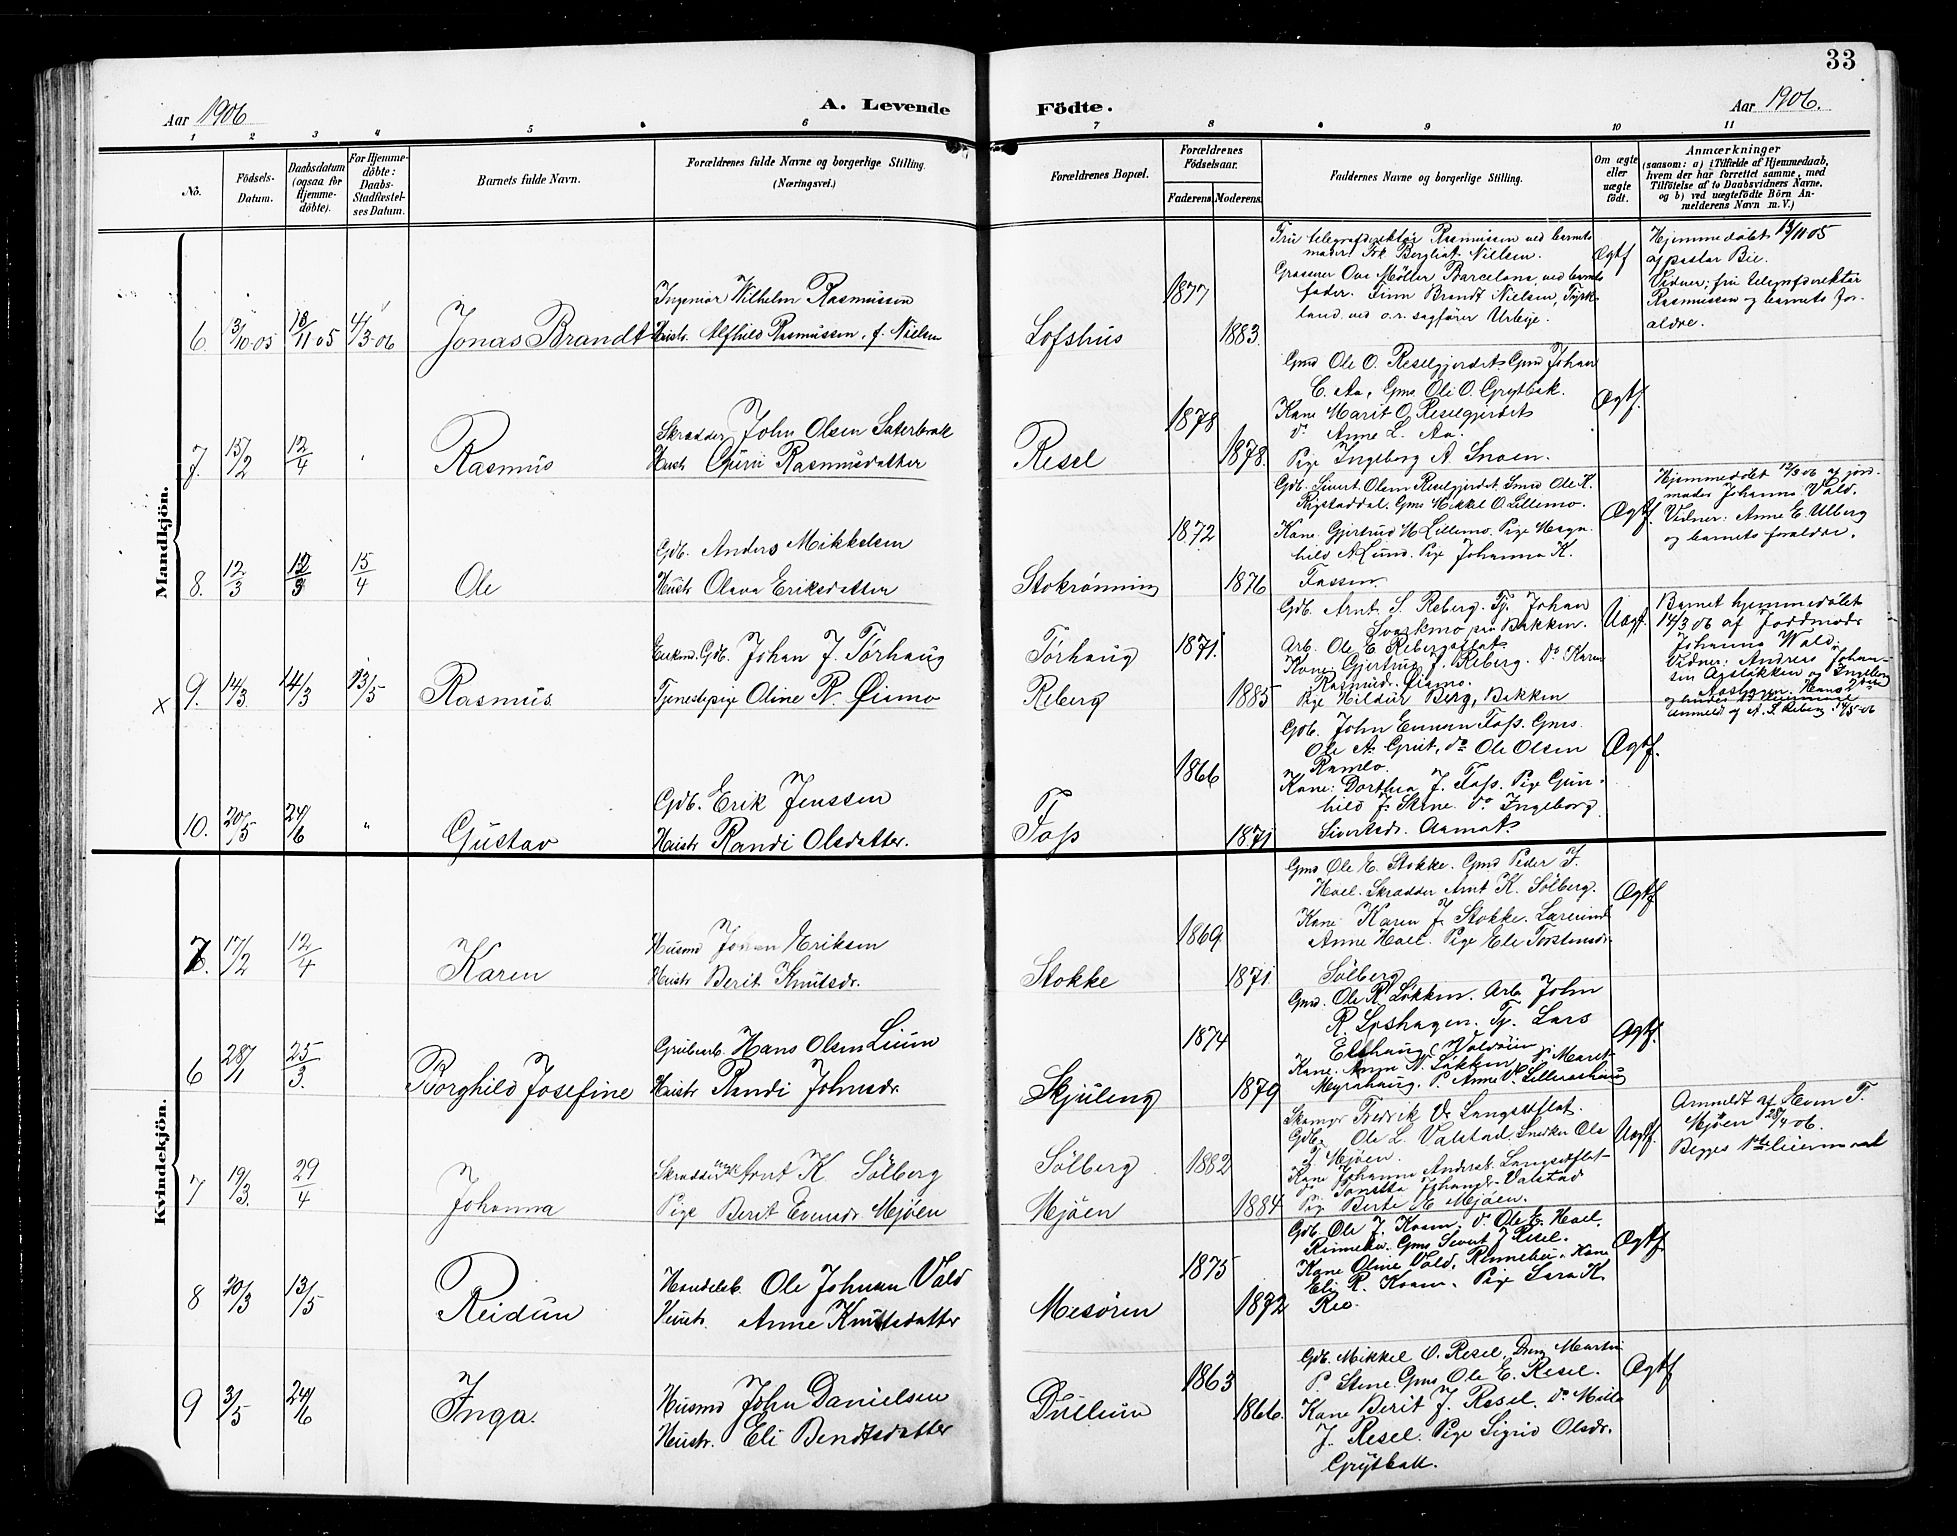 33
Aar 1906
A. Levende
Födte.
Aar 1906.
1 2 3 4 5 6 7 8 9 10 11
No.
Födsels-
Datum.
Daabsdatum
(ogsaa for
Hjemme-
döbte).
For Hjemme-
döbte:
Daabs-
Stadfæstel-
ses Datum.
Barnets fulde Navn.
Forældrenes fulde Navne og borgerlige Stilling.
(Næringsvei.)
Forældrenes Bopæl.
Forældrenes
Födselsaar.
Faderens Moderens
Faddernes Navne og borgerlige Stilling.
Om ægte
eller
uægte
födt.
Anmærkninger
(saasom: a) i Tilfælde af Hjemmedaab,
hvem der har forrettet samme, med
Tilföielse af to Daabsvidners Navne,
og b) ved uægtefödte Börn An-
melderens Navn m. V.)
Mandkjön.
6. 3/10-05 18/11 05 4/3-06 Jonas Brandt
Ingeniør Wilhelm Rasmussen
Hustr. Alfhild Rasmussen, f. Nielsen
Lofshus
1877
1883.
Fru telegrafdirektør Rasmussen ved barnets
moder, Frk. Bergliot Nielsen.
Grosserer Ove Møller Barcelona, ved barnets
fader. Finn Brandt Nielsen, Tysk-
land, ved o.r. sagfører Urbye.
Ægtf
Hjemmedøbt 13/11 05
af pastor Bie.
Vidner; fru telegrafdirektør
Rasmussen og barnets for-
ældre.
7. 15/2 12/4 Rasmus
Skrædder John Olsen Sæterbak
Hust. Guri Rasmusdatter
Resel
1878
1878.
Gms Ole O. Reselgjerdet. Gms Johan
C. Aa, Gms. Ole O. Grytbak.
Kone Marit O. Reselgjerdet
do Anne L. Aa.
Pige Ingeborg A. Snoen.
Ægtf.
8. 12/3 12/3 15/4 Ole
Gdb. Anders Mikkelsen
Hustr Olava Eriksdatter
Stokrønning
1872
1876
Gdb. Sivert Olsen Reselgjerdet. Smed Ole K.
Rigstaddal. Gms Mikkel O Lillemo.
Kone Gjertrud M Lillemo. Pige Magn-
hild A Lund. Pige Johanna K.
Fossem.
Ægtf.
Hjemmedøbt 12/3 06 af jord-
moder Johanna Vold.
Vidner: Anne E. Ulberg
og barnets forældre.
x 9. 14/3 14/3 13/5 Rasmus
Enkem. Gdb. Johan J. Tørhaug
Tjenestepige Oline R. Øiamo
Tørhaug
Reberg
1871.
1885
Gdb. Arnt S. Reberg. Tj. Johan
Svorkmo pr. Bakken.
Arb. Ole E Rebergsflat.
Kone Gjertrud J. Reberg. do Karen
Rasmusdr. Øiamo.
Pige Hildur Berg, Bakken
Uægt.
Barnet hjemmedøbt
14/3 06 af Jordmoder
Johanna Wold.
Vidner: Andreas Johan-
sen Agsløkken og Ingeborg
Anmeldt af A. S. Reberg. 14/5-06
10. 20/5 24/6 " Gustav
Gdb. Erik Jenssen
Hustr Randi Olsdatter.
Foss
1866
1871
Gdb. John Eunan Foss. Gms
Ole A. Grut, do Ole Olsen
Ramlo
Kone: Dorthea J. Foss. Pige Gun-
hild J. Stene. do Ingeborg
Sivertsdr. Aamot.
Ægtf.
Kvindekjön.
7. 17/2 12/4 Karen
Husmd Johan Eriksen
Hustr Berit Knutsdr.
Stokke
1869
1871.
Gms Ole E. Stokke. Gms Peder T.
Hoel. Skrædder Arnt K. Sølberg.
Kone: Karen J. Stokke. Lærerinde
Anne Hoel. Pige Eli Torstensdr
Sølberg
Ægtf
6 28/1 25/3. Borghild Josefine
Grubearb. Hans Olsen Lium
Hustr Randi Johnsdr.
Skjuleng
1874
1879
Gms. Ole R. Løkken. Arb. John
R. Løshagen. Tj. Lars
Elshaug, Voldøien
Kone Anne N. Løkken do Maret
Myrahaug. P. Anne O. Lilleraahaug
Ægtf.
7 19/3. 29/4 Johanna
Skrædder ungk Arnt K Sølberg
Pige Berit Evensdr Mjøen
Sølberg
Mjøen
1882
1884
Skomgr Fredrik O. Langseflat.
Gdb. Ole L. Valstad. Snedker Ole
T Mjøen.
Kone Johanna Andersd. Langseflat
do Tonetta Johansdr Valstad
Pige Berte E Mjøen.
Uægtf.
Anmeldt af Sven T.
Mjøen 28/4 06.
Begges 1ste leiermaal
8 20/3 13/5 Reidun
Handelsb. Ole Johnsen Vold
Hustr. Anne Knutsdatter
Mesøren
1875
1872
Gdb. Ole J. Kvam. do Ole E. Hoel.
Rennebu. Gms Sivert J Resel.
Kone Oline Vold, Rennebu. Kone
Eli R. Kvam. Pige Sara K.
Reo.
Ægtf
9 3/5 24/6 Inga.
Husmd John Danielsen
Hustr. Eli Bendtsdatter
Dullum
1863
1866.
Gdb. Mikkel O. Resel, Dreng Martin
P. Stene. Gms Ole E. Resel.
Kone Berit J. Resel. do Mille
J. Resel. Pige Sigrid Olsdr.
Grytbak.
Ægtf